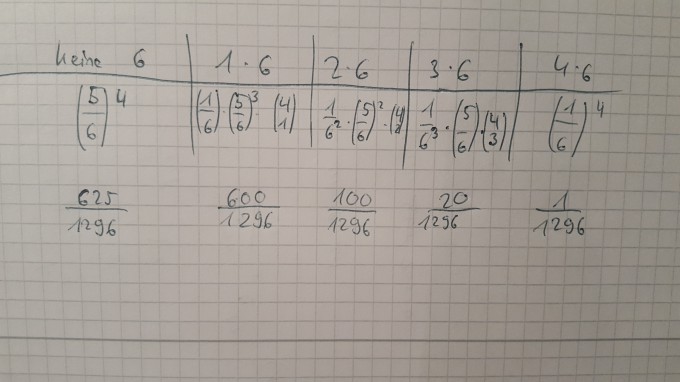 keine 6 | 1·6 | 2·6 | 3·6 | 4·6
(5/6)^4 | (1/6)·(5/6)^3·(4 1) | 1/6^2·(5/6)^2·(4 2) | 1/6^3·(5/6)·(4 3) | (1/6)^4
625/1296 600/1296 100/1296 20/1296 1/1296